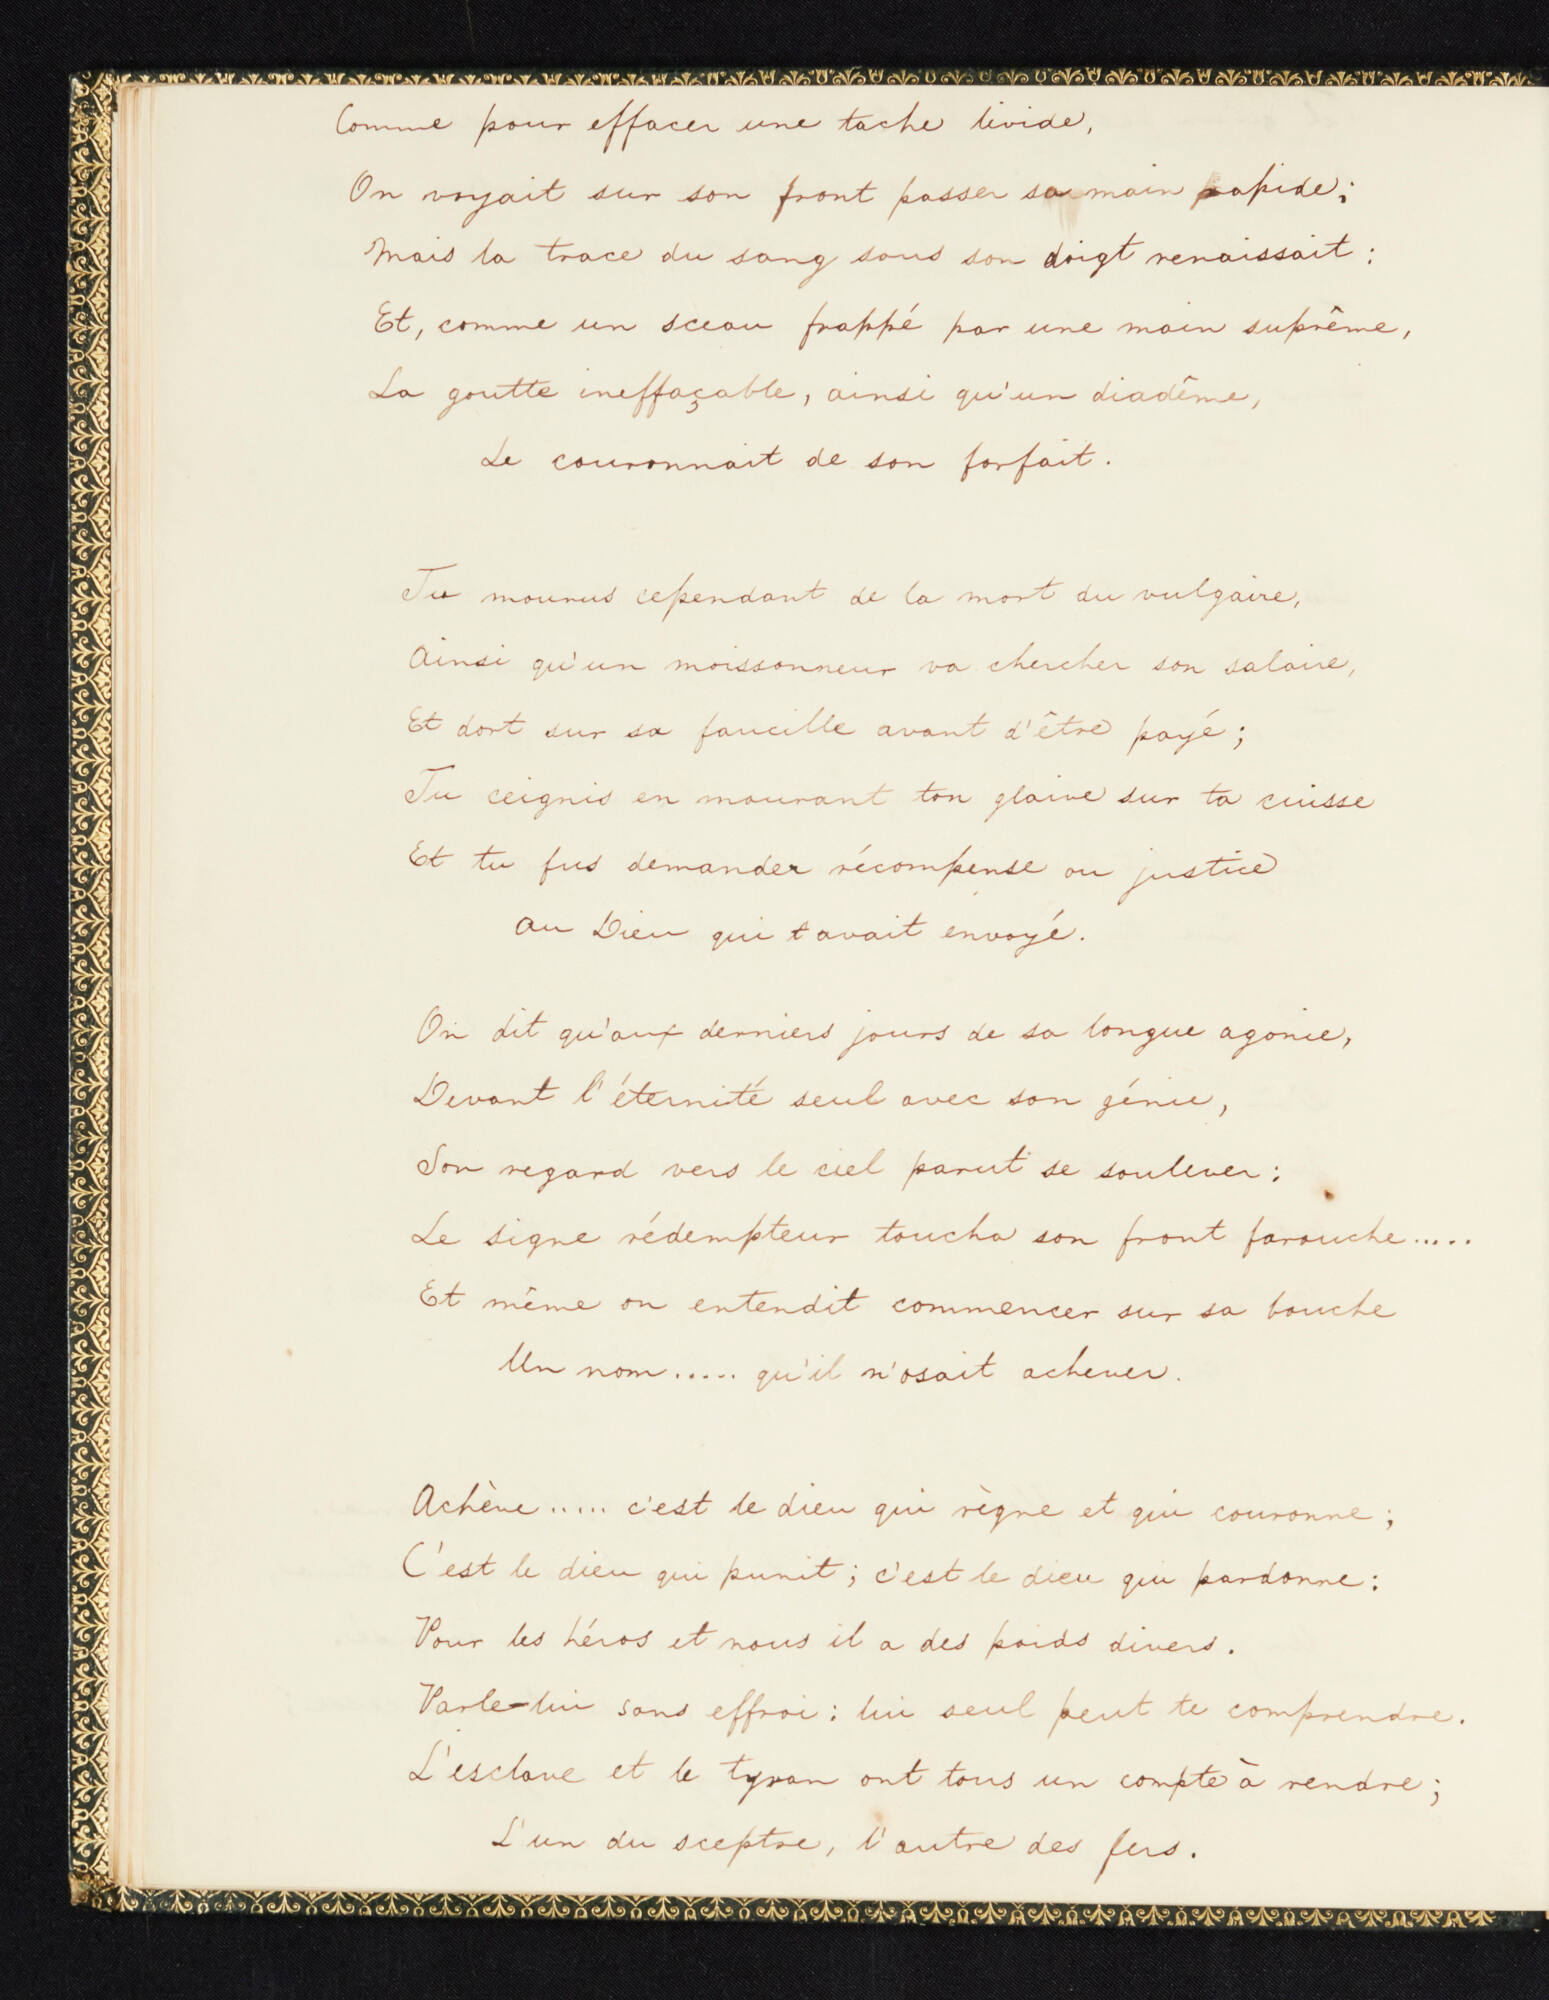 Comme pour effacer une tache livide,
On voyait sur son front passer sa main rapide;
Mais la trace du sang sous son doigt renaissait:
Et, comme un sceau frappé par une main suprême,
La goutte ineffaçable, ainsi qu'un diadême,
Le couronnait de son forfait.
Tu mourus cependant de la mort du vulgaire,
Ainsi qu'un moissonneur va chercher son salaire,
Et dort sur sa faucille avant d'être payé;
Tu ceignis en mourant ton glaive sur ta cuisse
Et tu fus demander récompense ou justice
Au Dieu qui t'avait envoyé.
On dit qu'aux derniers jours de sa longue agonie,
Devant l'éternité seul avec son génie,
Son regard vers le ciel parut se soulever:
Le signe rédempteur toucha son front farouche.....
Et même on entendit commencer sur sa bouche
Un nom..... qu'il n'osait achever.
Achève..... c'est le dieu qui règne et qui couronne;
C'est le dieu qui punit; c'est le dieu qui pardonne:
Pour les héros et nous il a des poids divers.
Parle-lui sans effroi: lui seul peut te comprendre.
L'esclave et le tyran ont tous un compte à rendre;
L'un du sceptre, l'autre des fers.